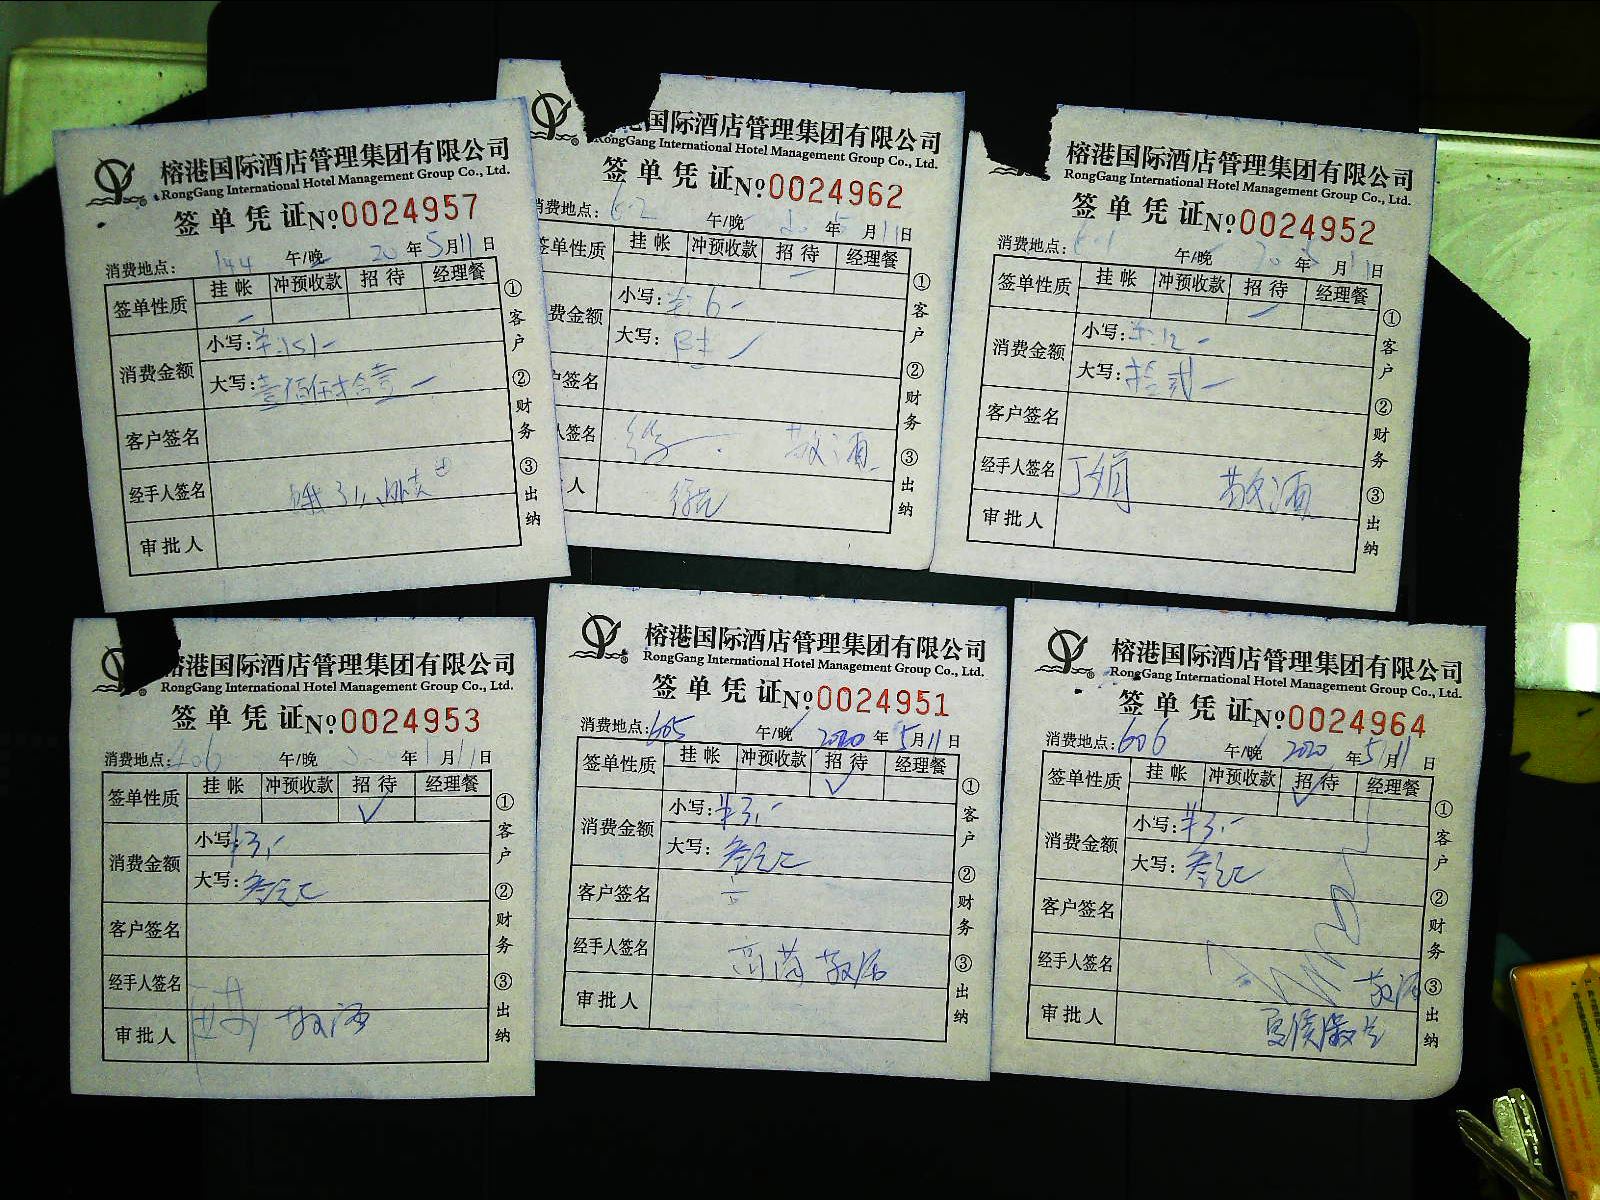 榕港国际酒店管理集团有限公司
RongGang International Hotel Management Group Co., Ltd.
签单凭证 №0024957
消费地点: 144 午/晚 20年5月11日
签单性质 挂帐 冲预收款 招待 经理餐
消费金额 小写:¥:151-
大写:壹佰伍拾壹
客户签名
经手人签名
审批人
①客户 ②财务 ③出纳
港国际酒店管理集团有限公司
RongGang International Hotel Management Group Co., Ltd.
签单凭证 №0024962
消费地点: 602 午/晚 20年5月11日
签单性质 挂帐 冲预收款 招待 经理餐
费金额 小写:¥:6-
大写:陆
户签名
人签名 敬酒
人
①客户 ②财务 ③出纳
榕港国际酒店管理集团有限公司
RongGang International Hotel Management Group Co., Ltd.
签单凭证 №0024952
消费地点: 601 午/晚 年 月11日
签单性质 挂帐 冲预收款 招待 经理餐
消费金额 小写:¥:12-
大写:拾贰
客户签名
经手人签名 丁娟 敬酒
审批人
①客户 ②财务 ③出纳
港国际酒店管理集团有限公司
RongGang International Hotel Management Group Co., Ltd.
签单凭证 №0024953
消费地点: 606 午/晚 年 月11日
签单性质 挂帐 冲预收款 招待 ✓ 经理餐
消费金额 小写:¥3.-
大写:叁元
客户签名
经手人签名
审批人 敬酒
①客户 ②财务 ③出纳
榕港国际酒店管理集团有限公司
RongGang International Hotel Management Group Co., Ltd.
签单凭证 №0024951
消费地点: 605 午/晚 2020年5月11日
签单性质 挂帐 冲预收款 招待 ✓ 经理餐
消费金额 小写:¥3.-
大写:叁元
客户签名
经手人签名 敬酒
审批人
①客户 ②财务 ③出纳
榕港国际酒店管理集团有限公司
RongGang International Hotel Management Group Co., Ltd.
签单凭证 №0024964
消费地点: 606 午/晚 2020年5月11日
签单性质 挂帐 冲预收款 招待 ✓ 经理餐
消费金额 小写:¥3.-
大写:叁元
客户签名
经手人签名 敬酒
审批人
①客户 ②财务 ③出纳